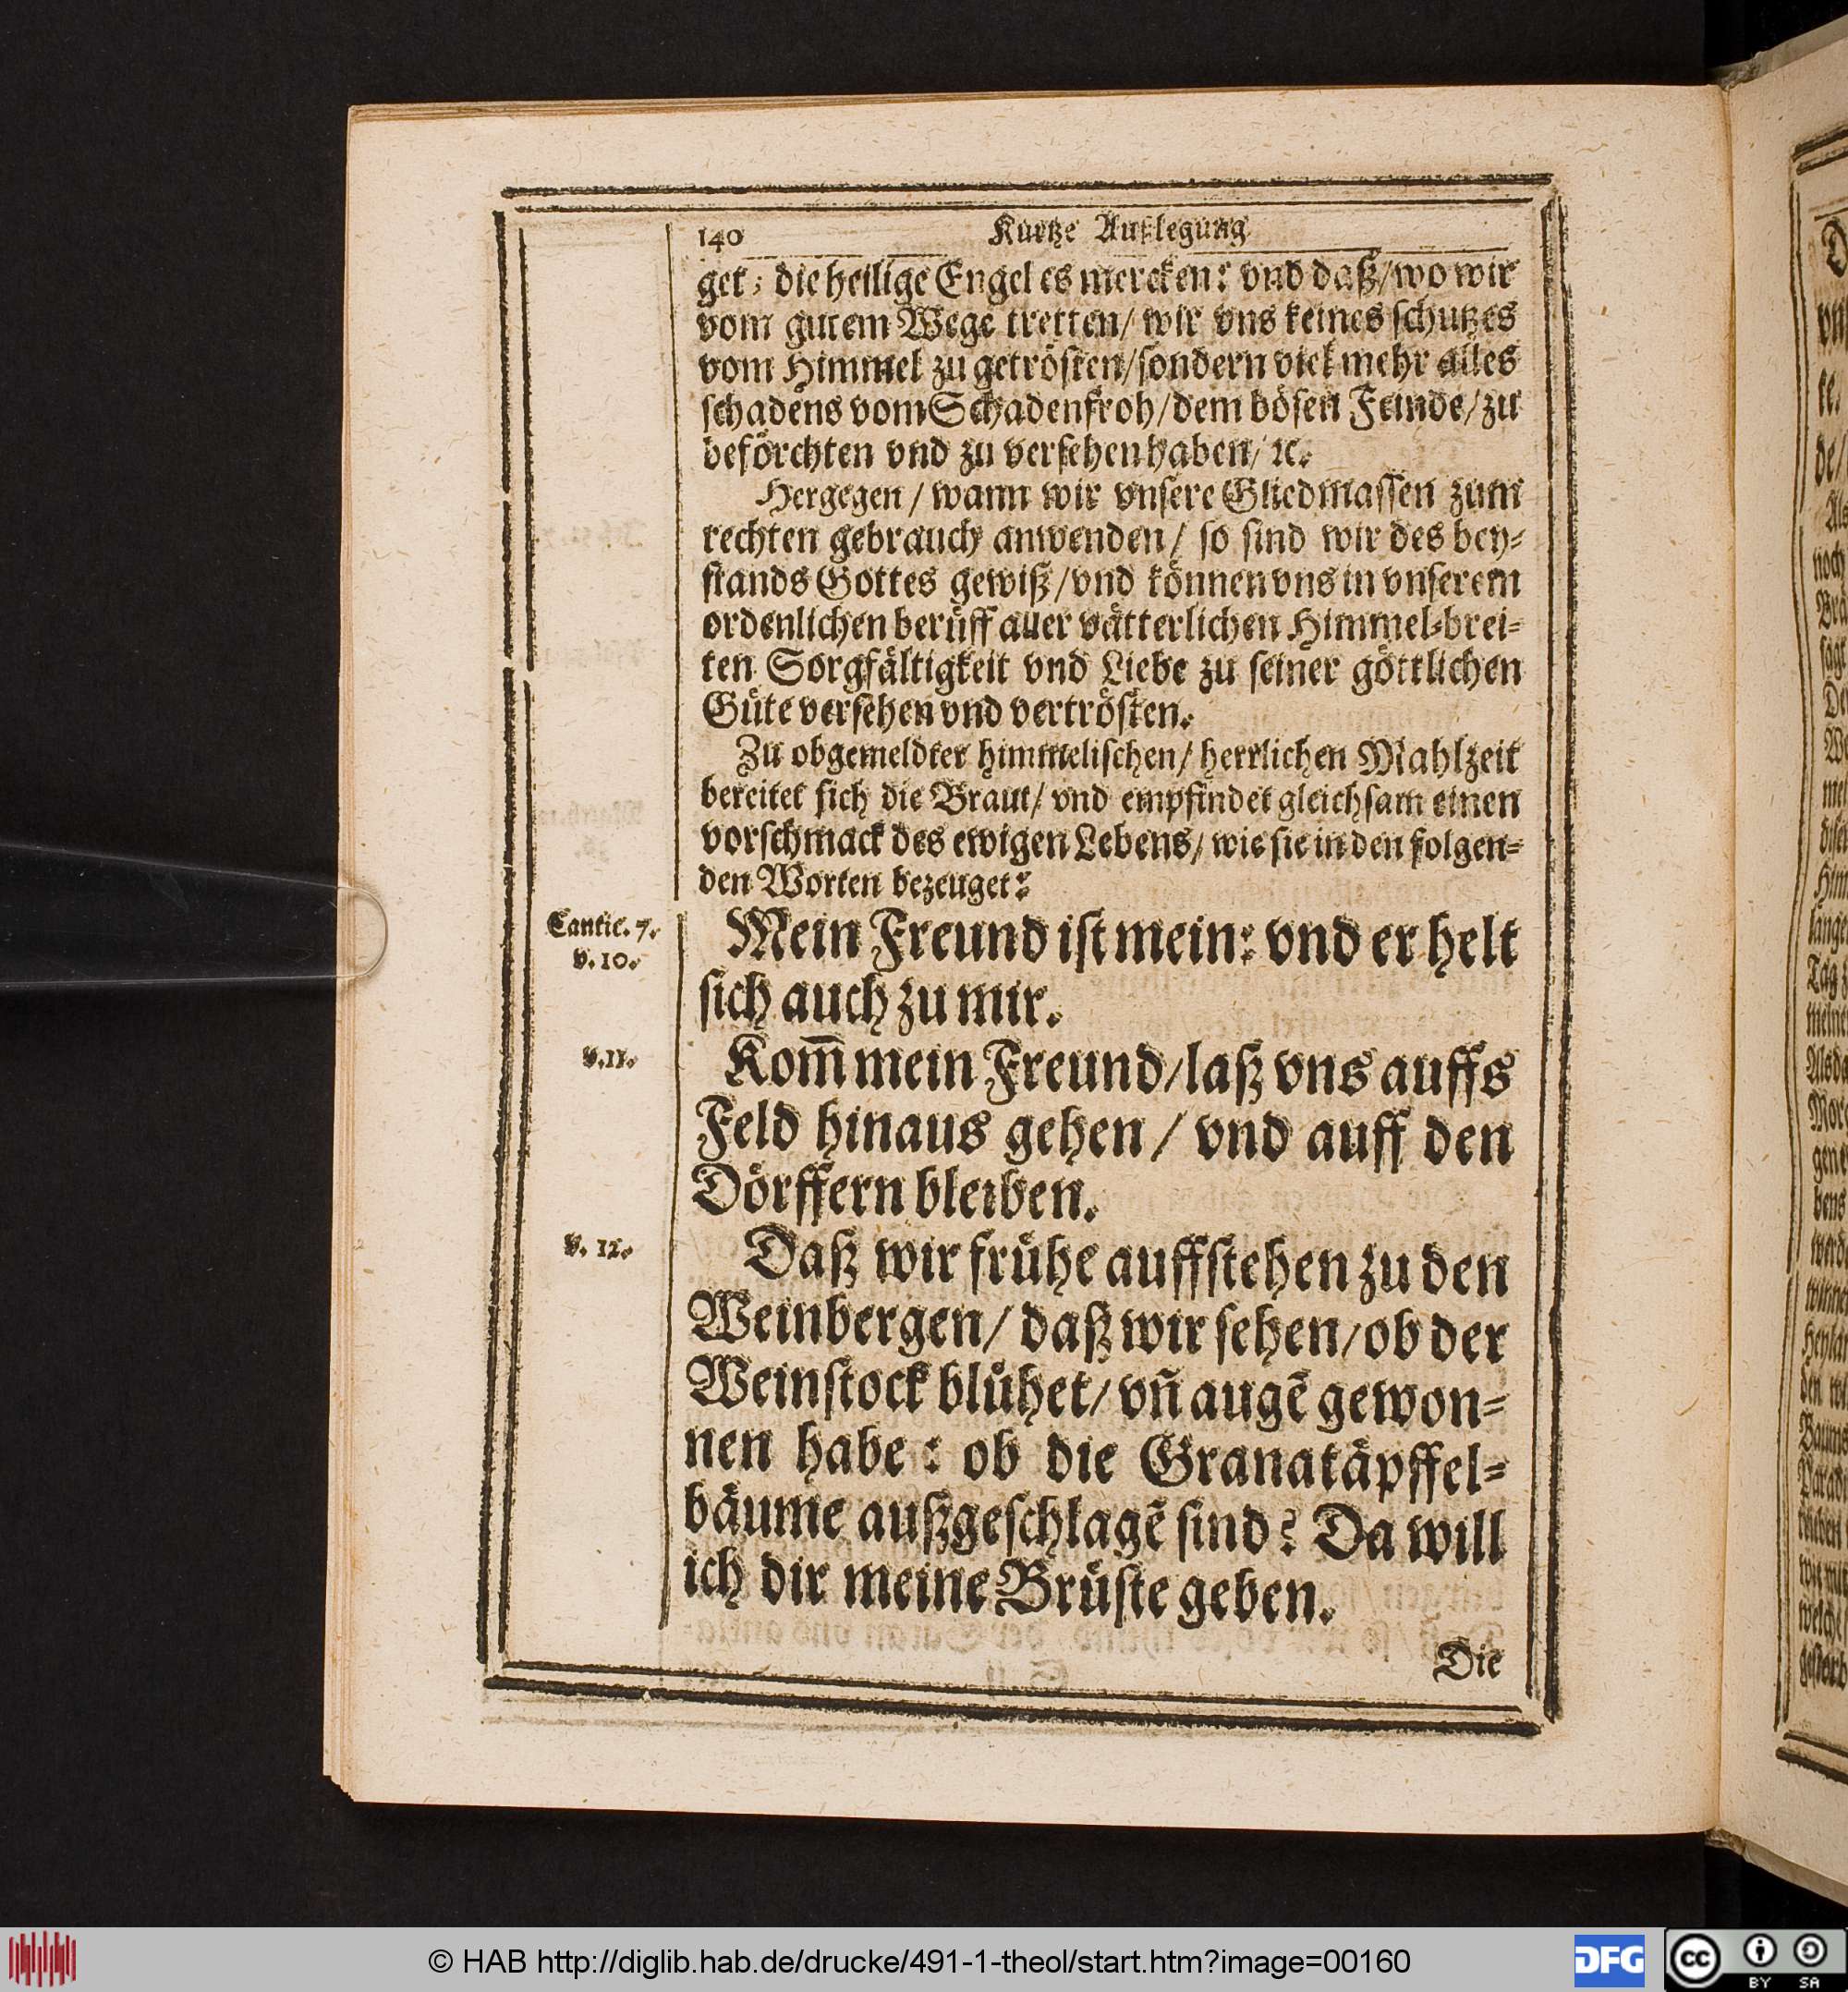 140 Kurtze Außlegung
get; die heilige Engel es mercken: vnd daß/ wo wir
vom gutem Wege tretten/ wir vns keines schutzes
vom Himmel zu getrösten/ sondern viel mehr alles
schadens vom Schadenfroh/ dem bösen Feinde/ zu
beförchten vnd zu versehen haben/ ꝛc.
Hergegen / wann wir vnsere Gliedmassen zum
rechten gebrauch anwenden/ so sind wir des bey-
stands Gottes gewiß/ vnd können vns in vnserem
ordenlichen beruff aller vätterlichen Himmel-brei-
ten Sorgfältigkeit vnd Liebe zu seiner göttlichen
Güte versehen vnd vertrösten.
Zu obgemeldter himmelischen/ herrlichen Mahlzeit
bereitet sich die Braut/ vnd empfindet gleichsam einen
vorschmack des ewigen Lebens/ wie sie in den folgen-
den Worten bezeuget:
Cantic. 7.
v. 10.
Mein Freund ist mein: vnd er helt
sich auch zu mir.
v. 11.
Kom̃ mein Freund/ laß vns auffs
Feld hinaus gehen / vnd auff den
Dörffern bleiben.
v. 12.
Daß wir frühe auffstehen zu den
Weinbergen/ daß wir sehen/ ob der
Weinstock blühet/ vñ augẽ gewon-
nen habe: ob die Granatäpffel-
bäume außgeschlagẽ sind? Da will
ich dir meine Brüste geben.
Die
© HAB http://diglib.hab.de/drucke/491-1-theol/start.htm?image=00160
DFG
cc BY SA